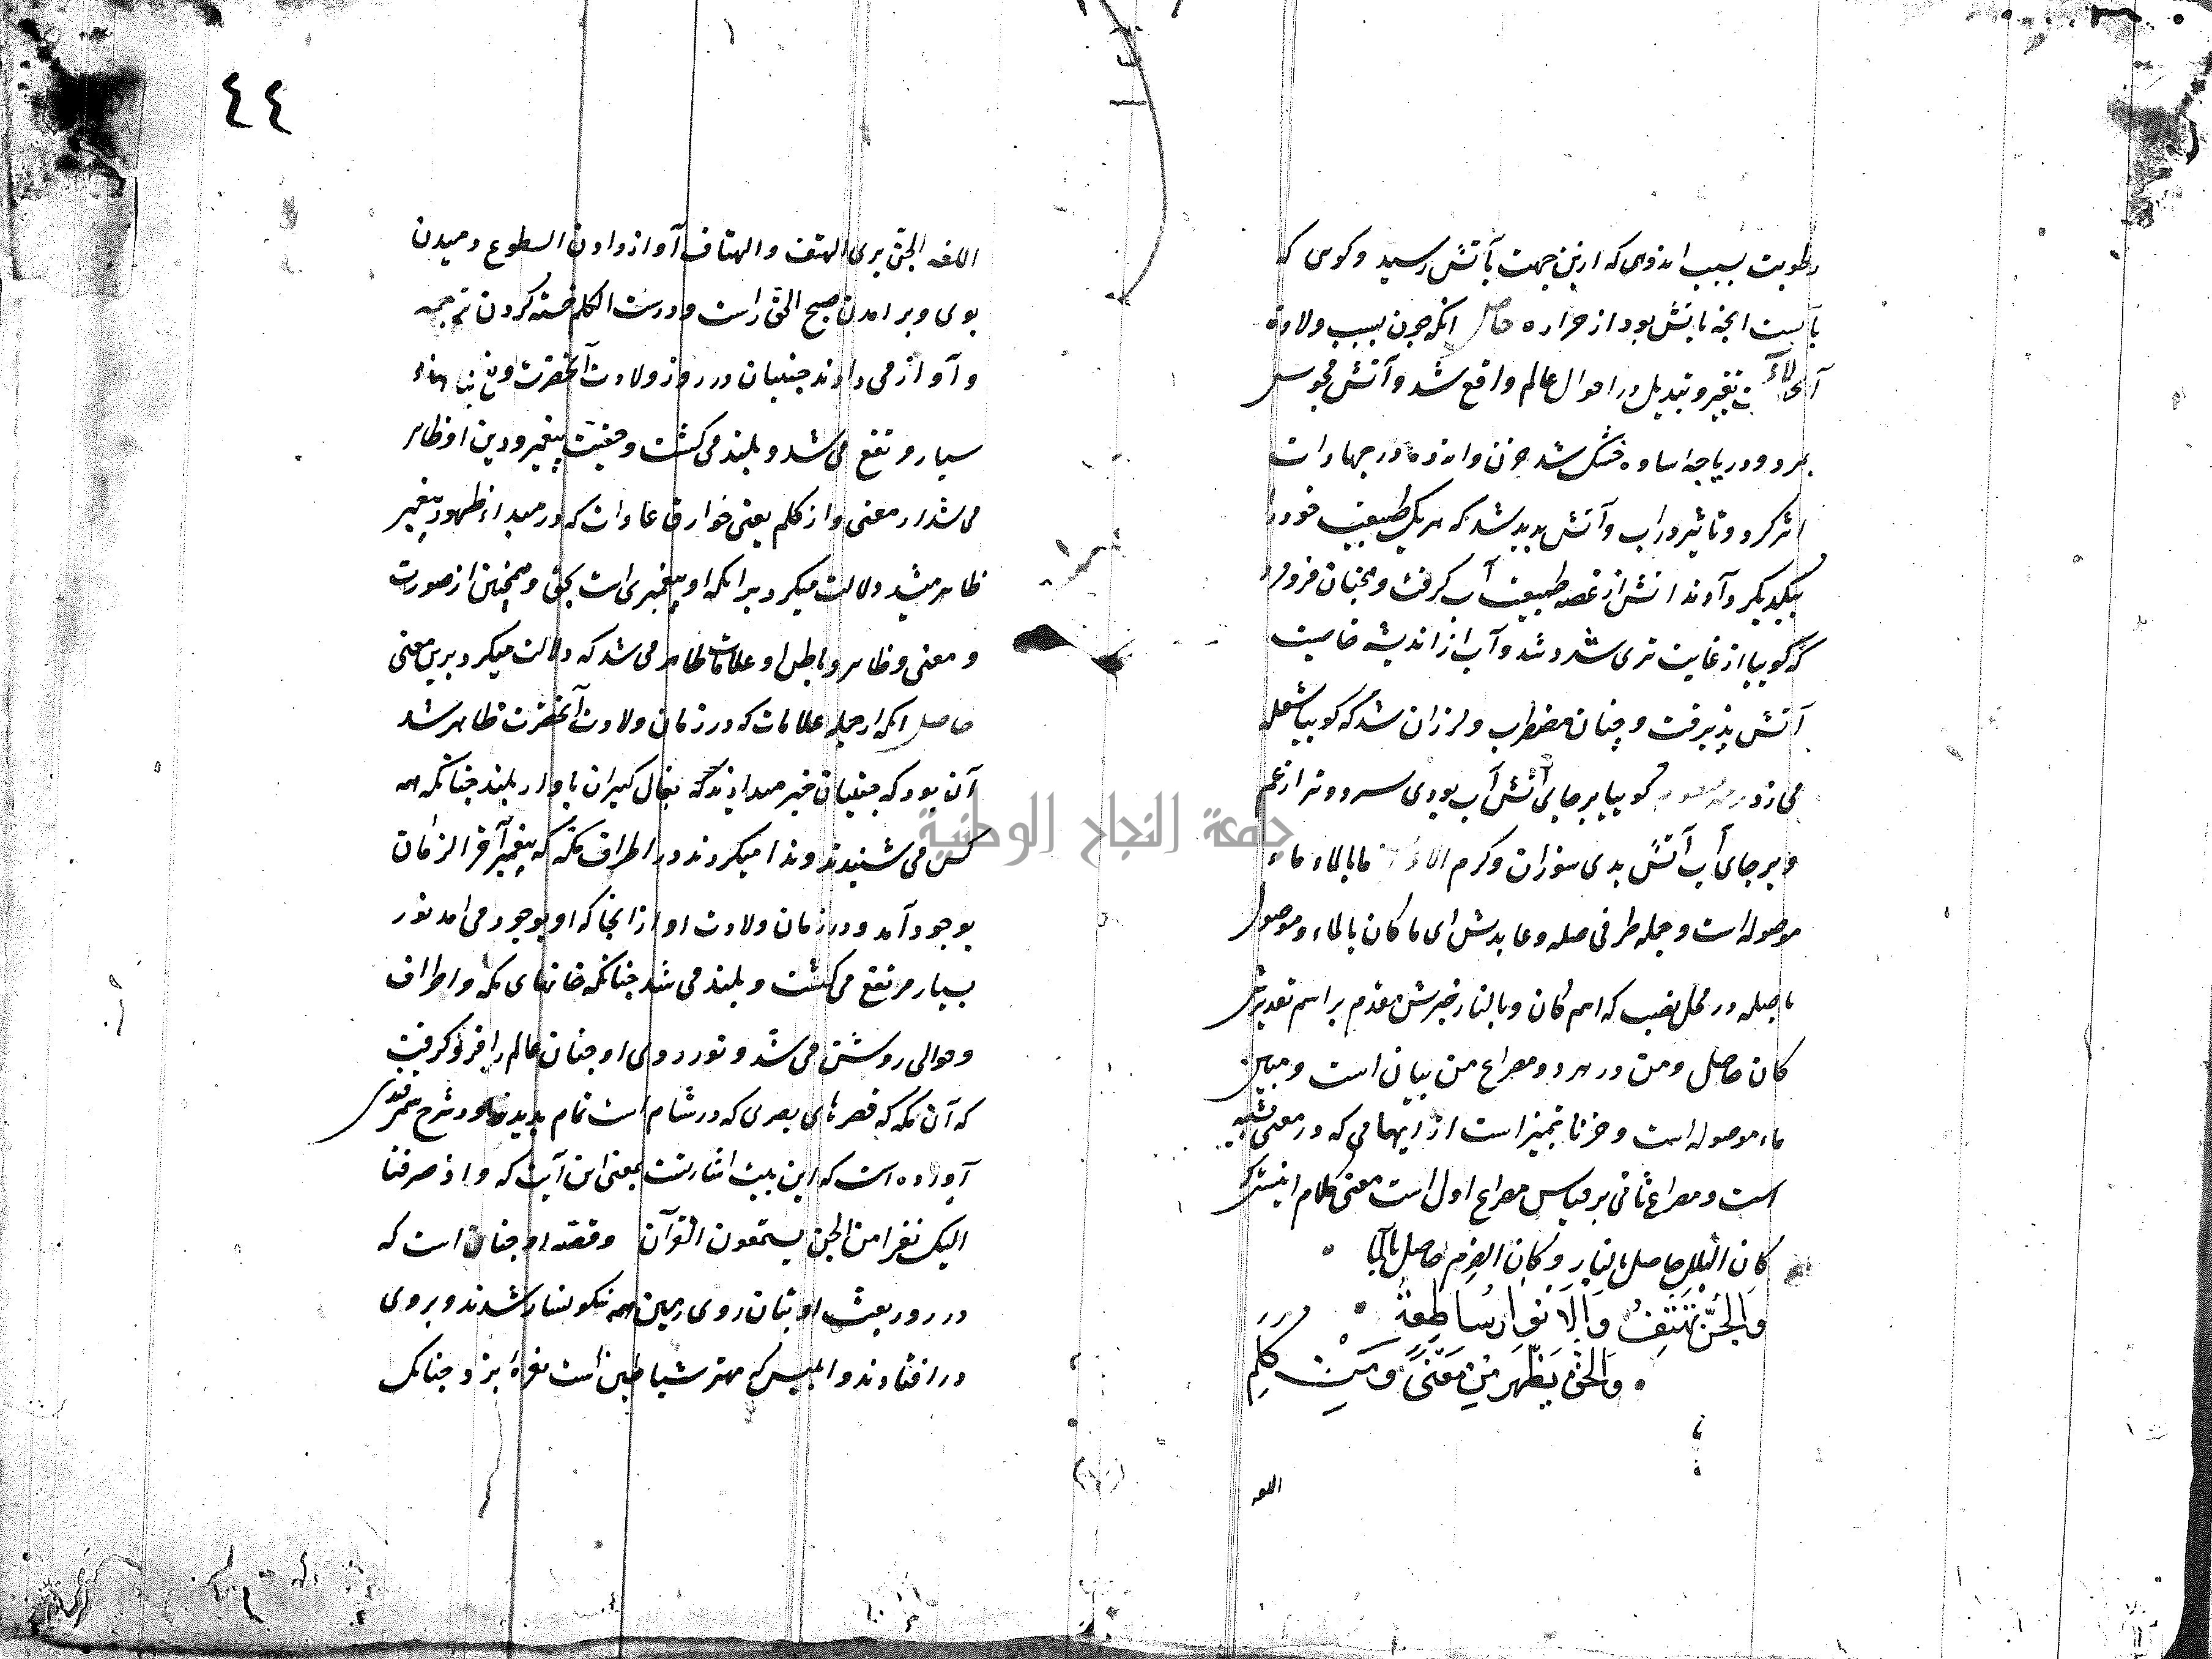 رطوبت بسبب اندوهی که ازین جهت بآتش رسید و کوئی که
بآبست انچه بآتش بود از حراره حاصل انکه چون بسبب ولادت
آنحضرت تغیر و تبدیل در احوال عالم واقع شد و آتش مجوس
بمرد و دریاچه ساوه خشک شد حزن و اندوه در جمادات
اثر کرد و تاثیر در آب و آتش پدید شد که هر یک طبیعت خود را
بیکدیکر دادند آتش از غصه طبیعت آب کرفت و چنان فرو مرد
که کوییا از غایت تری سرد شد و آب از اندیشه خاصیت
آتش پذیرفت و چنان مضطرب و لرزان شد که کوییا شعله
می زد کوییا بر جای آتش آب بودی سرد و تر از غم
و بر جای آب آتش بدی سوزان و کرم ما بالماء ماء
موصوله است و جمله ظرفی صله و عایدش ای ما کان بالماء و موصول
با صله در محل نصب که اسم کان و بالنار خبرش مقدم بر اسم تقدیرش
کان حاصل و من در هر دو مصراع من بیان است و مبین
ماء موصوله است و حزنا تمییز است از ابهامی که در معنی تشبیه
است و مصراع ثانی بر قیاس مصراع اول است معنی کلام اینست که
کان البلل حاصل بالنار و کان الضرم حاصل بالماء
وَالجِنُّ تَهْتِفُ وَالأَنْوَارُ سَاطِعَةٌ
وَالحَقُّ يَظْهَرُ مِنْ مَعْنًى وَمِنْ كَلِمِ
اللغه
٤٤
اللغه الجن پری الهتف و الهتاف آواز دادن السطوع دمیدن
بوی و برامدن صبح الحق راست و درست الکلم خسته کردن ترجمه
و آواز می دادند جنیان در روز ولادت آنحضرت و
بسیار مرتفع می شد و بلند می کشت و حقیت پیغمبر و دین او ظاهر
می شد از معنی و از کلم یعنی خوارق عادات که در مبداء ظهور پیغمبر
ظاهر میشد دلالت میکرد برانکه او پیغمبری است بحق و همچنین از صورت
و معنی و ظاهر و باطن او علامات ظاهر می شد که دلالت میکرد برین معنی
حاصل انکه از جمله علامات که در زمان ولادت آنحضرت ظاهر شد
آن بود که جنیان خبر میدادند که بفال کیران باواز بلند چنانکه همه
کس می شنیدند و ندا میکردند در اطراف مکه که پیغمبر آخر الزمان
بوجود آمد و در زمان ولادت او از انجا که او بوجود می امد نور
بسیار مرتفع می کشت و بلند می شد چنانکه خانهای مکه و اطراف
و حوالی روشن می شد و نور روی او چنان عالم را فرو کرفت
که آن مکه که قصرهای بصری که در شام است تمام پدید و در شرح سمرقندی
آورده است که این بیت اشارتست بمعنی این آیت که و اذ صرفنا
الیک نفرا من الجن یستمعون القرآن و قصه او چنان است که
در روز بعثت او بتان روی زمین همه نکونسار شدند و بروی
در افتادند و ابلیس که مهتر شیاطین است نعره بزد چنانک